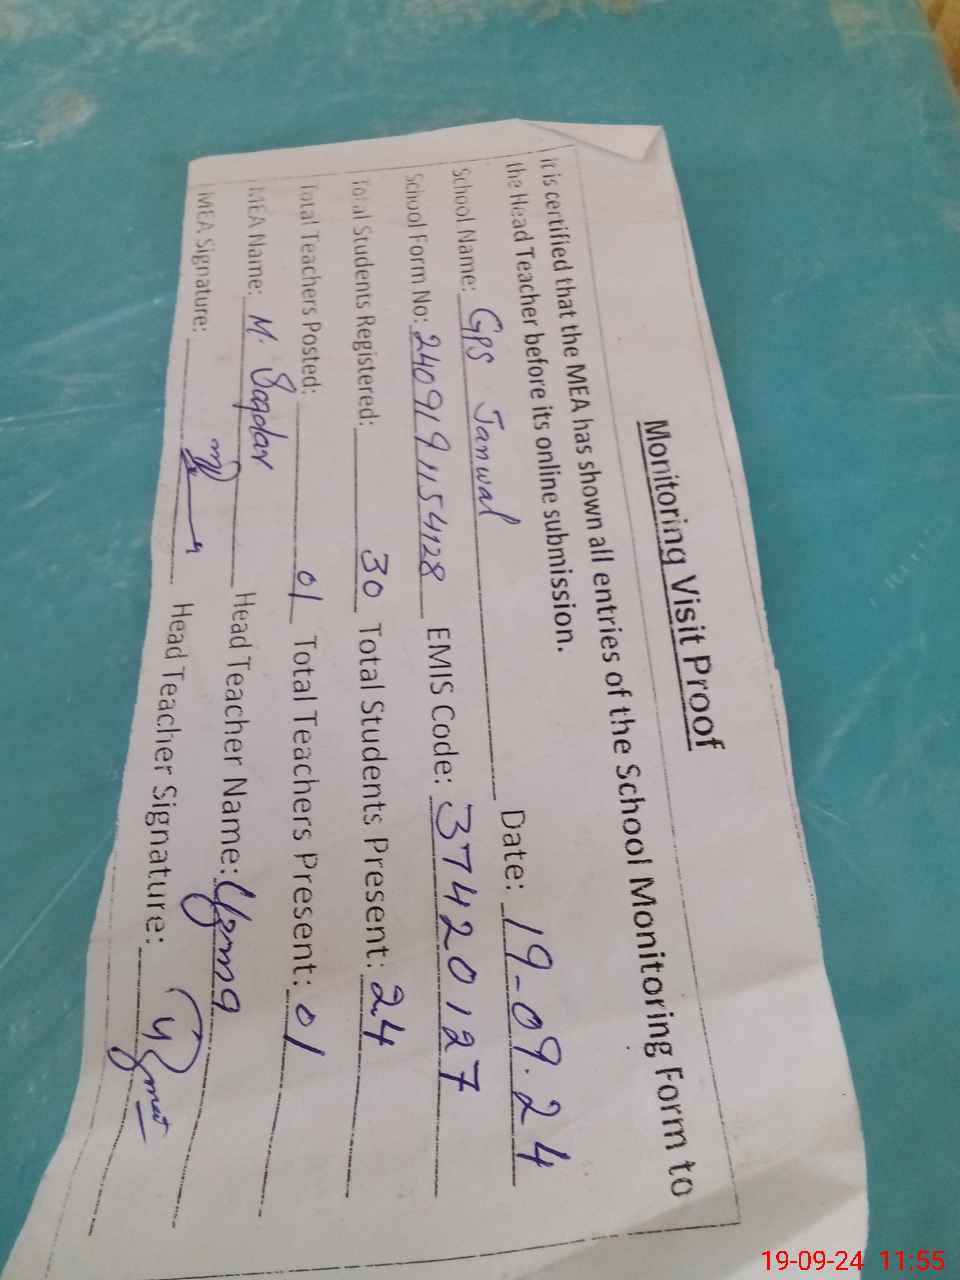 Monitoring Visit Proof
It is certified that the MEA has shown all entries of the School Monitoring Form to
the Head Teacher before its online submission.
School Name: GPS Janwal Date: 19-09-24
School Form No: 2409191154128 EMIS Code: 37420127
Total Students Registered: 30 Total Students Present: 24
Total Teachers Posted: 01 Total Teachers Present: 01
MEA Name: M. Head Teacher Name: Uzma
MEA Signature: Head Teacher Signature:
19-09-24 11:55